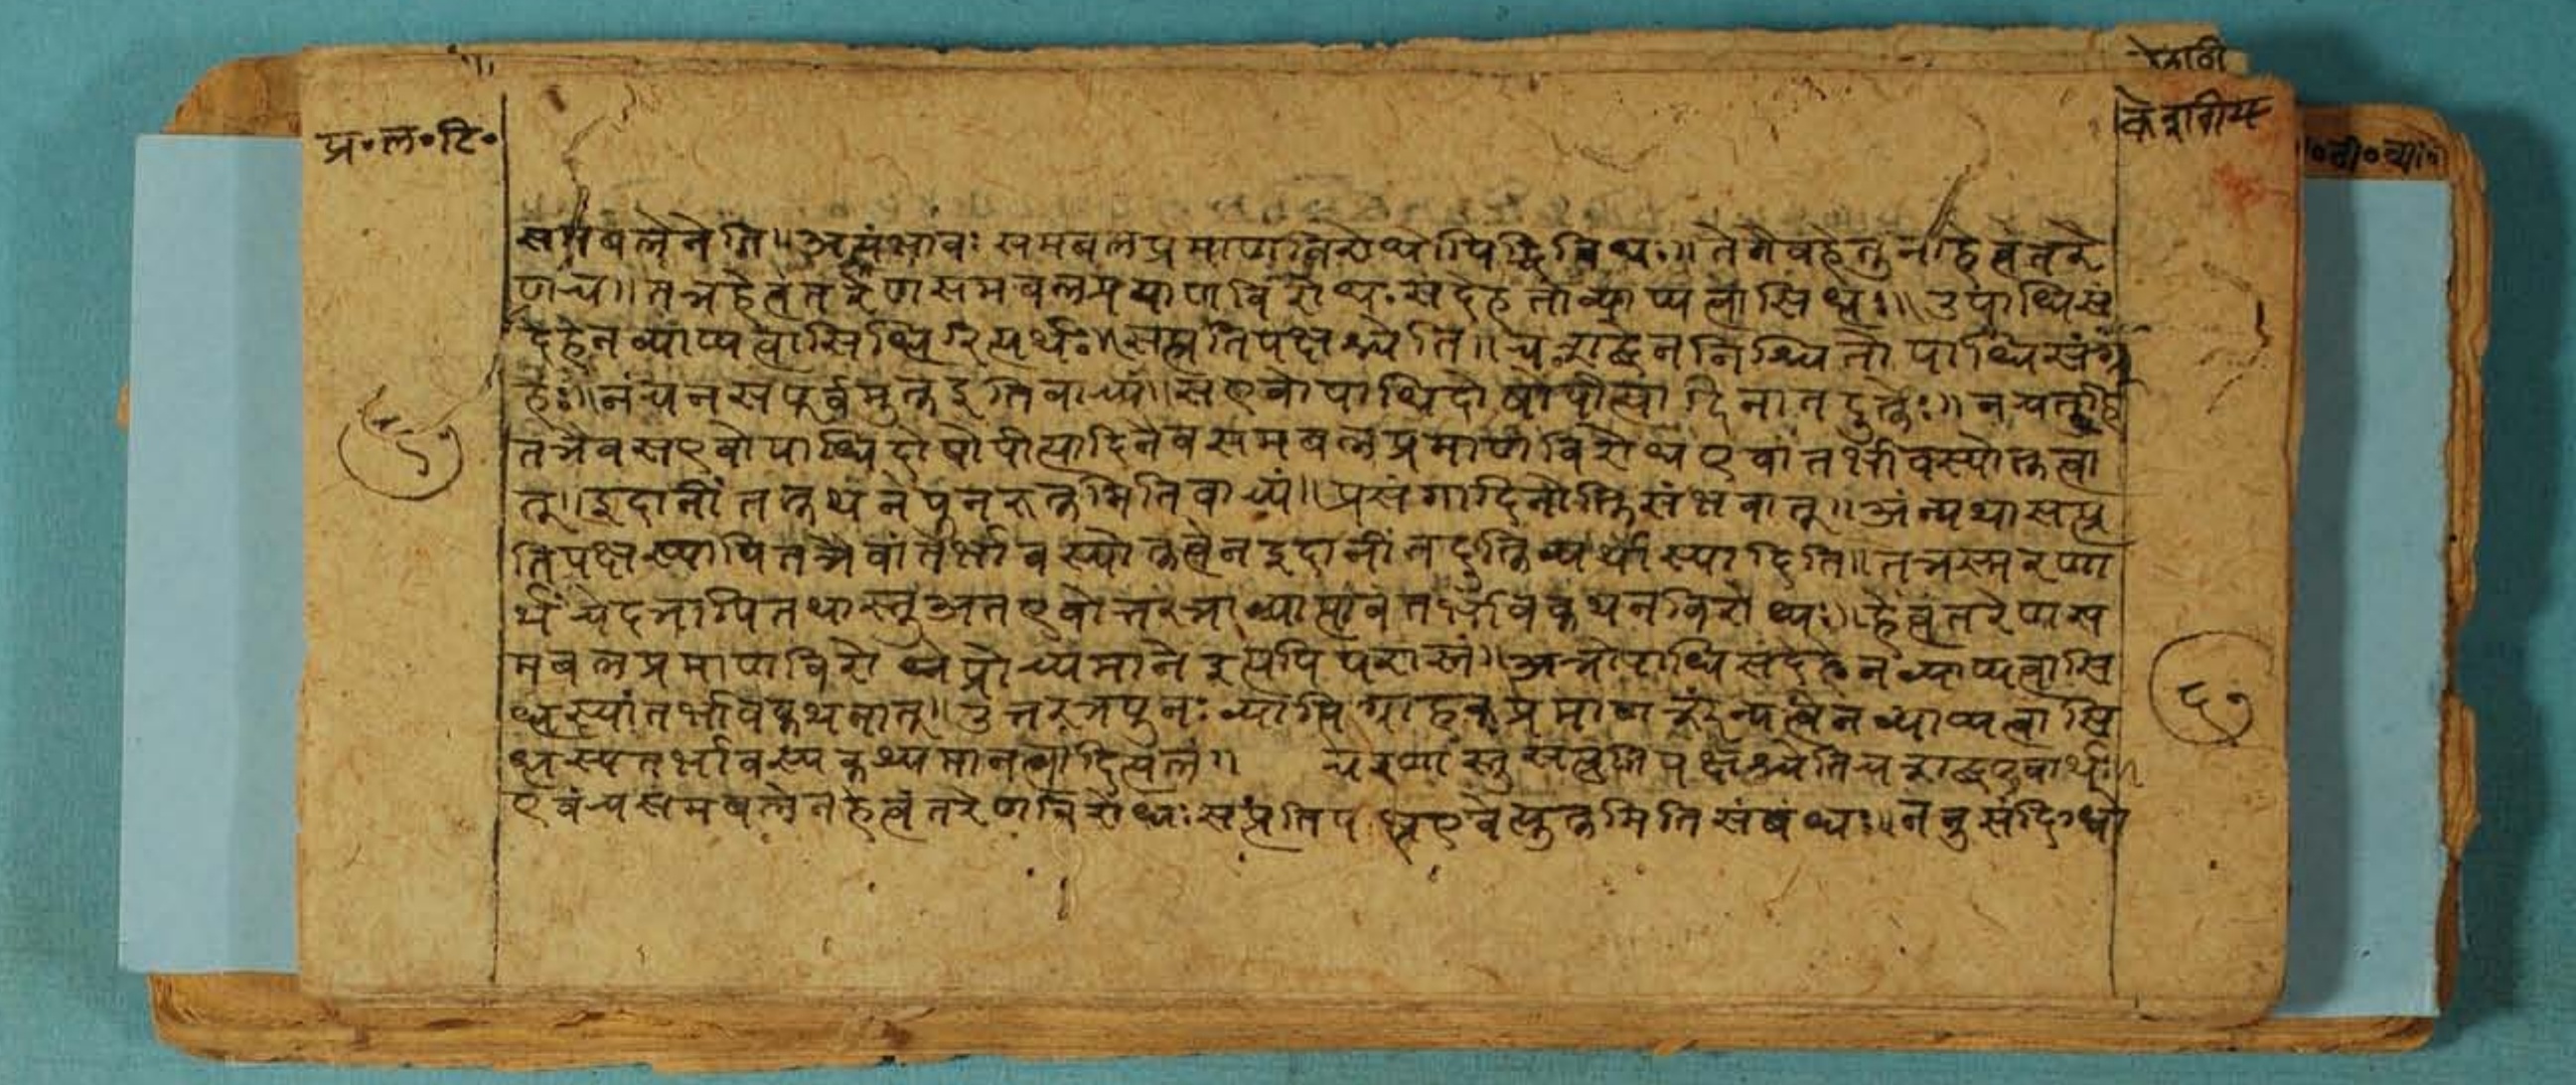 प्र॰ल॰टि॰
केशवीय
समबलेनेति॥अयंभावः समबलप्रमाणविरोधोपिद्विविधः॥तेनैवहेतुनाहेत्वंतरे
णच॥तत्रहेत्वंतरेणसमबलप्रमाणविरोधः संदेहतोव्याप्यत्वासिधिः॥उपाधिसं
देहेनव्याप्यत्वासिधिरित्यर्थः॥सत्प्रतिपक्षश्चेति॥चशब्देननिश्चितोपाधिसंग्र
हः॥नचनसपूर्वमुक्तइतिवाच्यं॥सएवोपाधिदोषोपीत्यादिनातदुक्तेः॥नचतर्हि
तत्रैवसएवोपाधिदोषोपीत्यादिनैवसमबलप्रमाणविरोधएवांतर्भावस्योक्तत्वा
त्॥इदानींतत्कथनेपुनरुक्तमितिवाच्यं॥प्रसंगादिनोक्तिसंभवात्॥अन्यथासत्प्र
तिपक्षस्यापितत्रैवांतर्भावस्योक्तत्वेनइदानींतदुक्तिव्यर्थास्यादिति॥तत्रस्मरणा
र्थंचेदत्रापितथास्तुअतएवोत्तरत्राव्याप्तावंतर्भावकथनविरोधः॥हेत्वंतरेणस
मबलप्रमाणविरोधेप्रोच्यमानेइत्यपिपरास्तं॥अत्रोपाधिसंदेहेनव्याप्यत्वासि
धेस्यांतर्भावकथनात्॥उत्तरत्रपुनःव्याप्तिग्राहकप्रमाणशून्यत्वेनव्याप्यत्वासि
धेस्यतर्भावस्यकथ्यमानत्वादित्यलं॥ चरणास्तुसत्प्रतिपक्षश्चेतिचशब्दएवार्थः॥
एवंचसमबलेनहेत्वंतरेणविरोधः सत्प्रतिपक्षएवेत्युक्तमितिसंबंधः॥ननुसंदिग्धो
६७